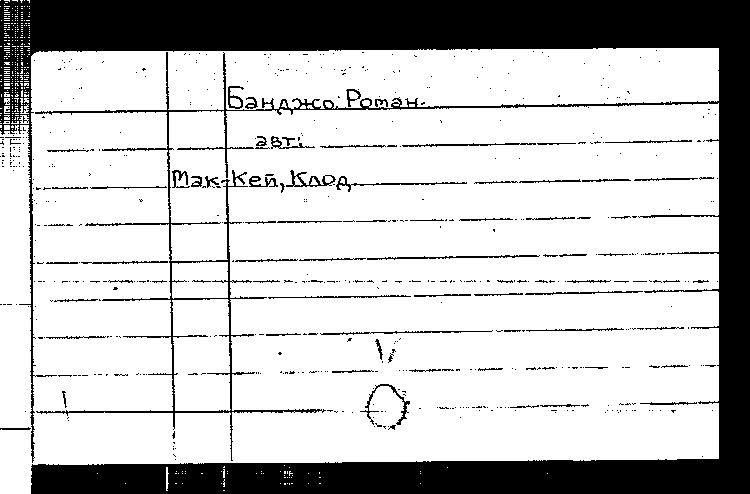 Банджо. Роман.
авт:
Мак-Кей, Клод.